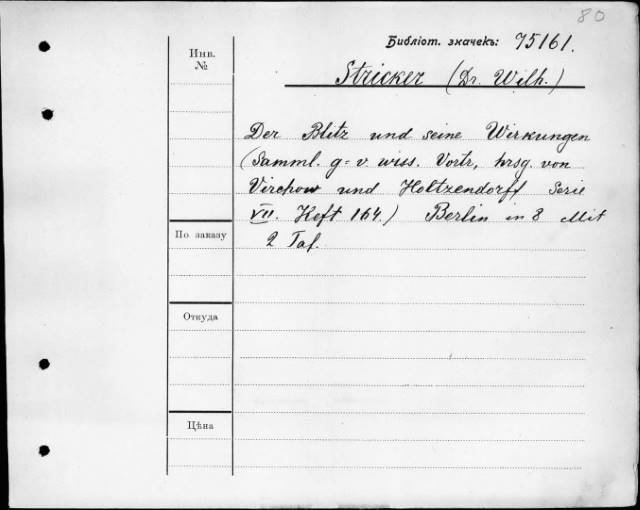 80
Библіот. значекъ: 75161.
Инв.
№
Stricker (Dr. Wilh.)
Der Blitz und seine Wirkungen
(Samml. g=v. wiss. Vortr., hrsg. von
Virchow und Holtzendorff Serie
VII. Heft 164.) Berlin in 8 Mit
2 Taf.
По заказу
Откуда
Цѣна